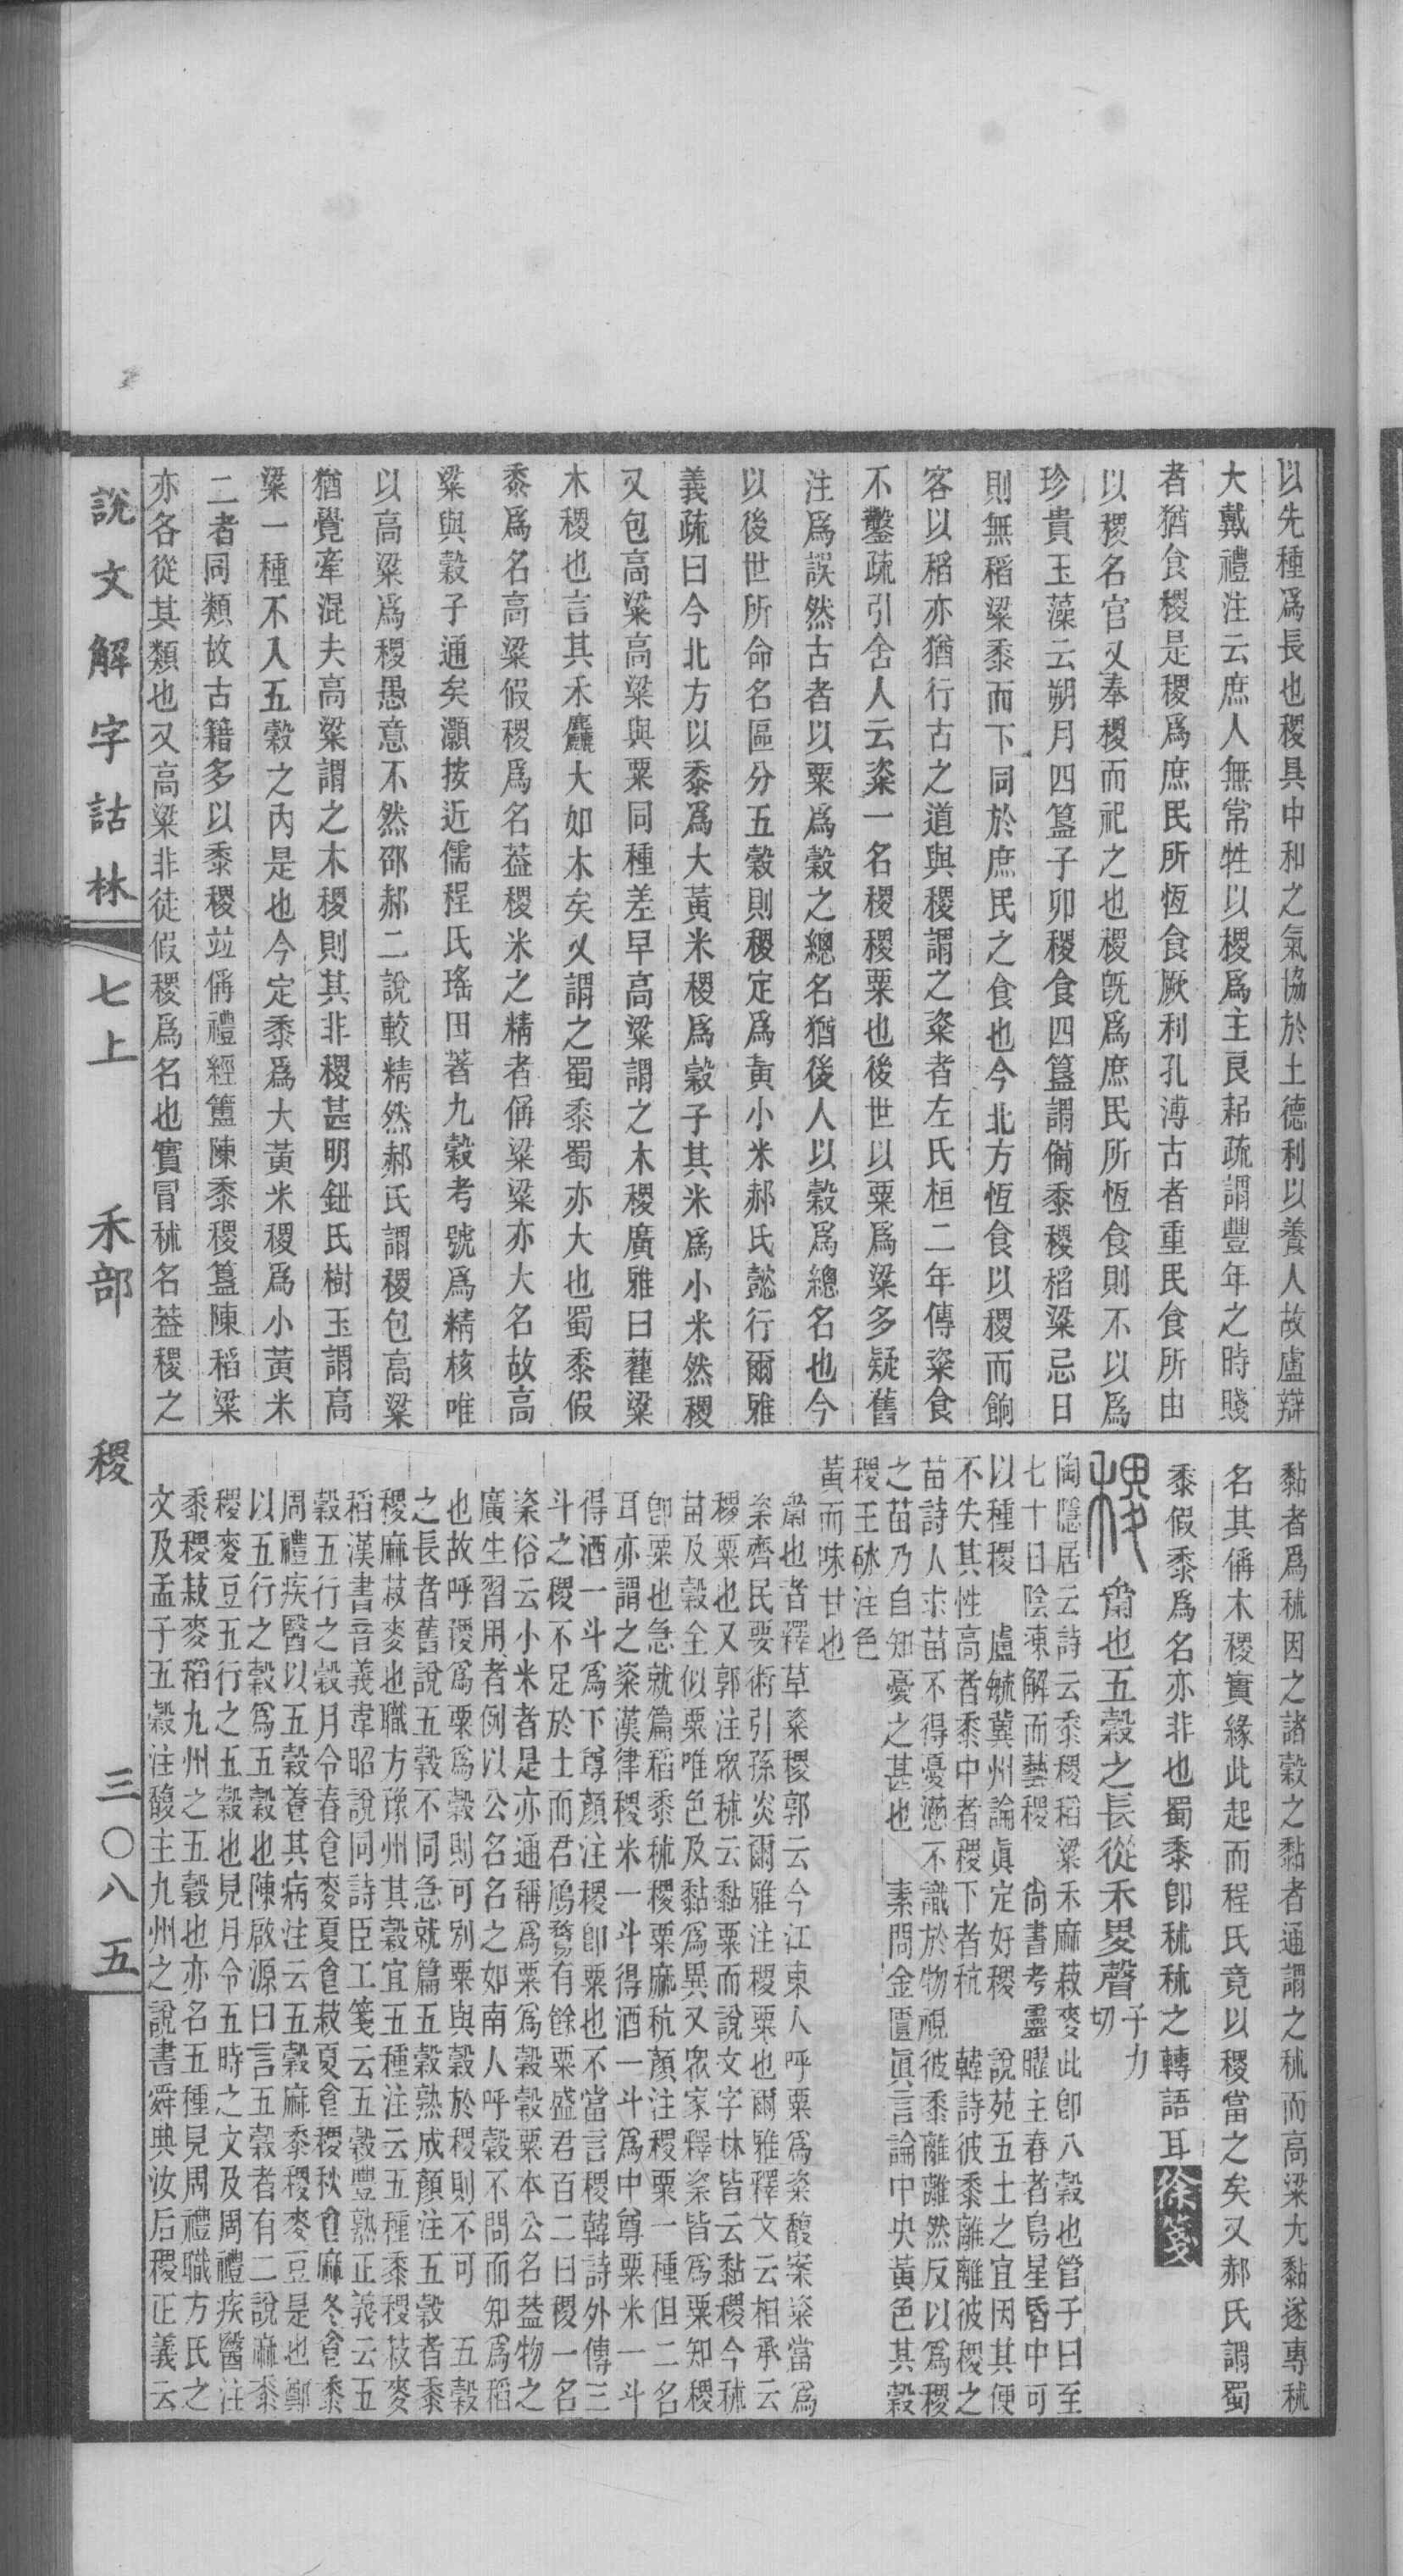 以先種爲長也稷具中和之氣協於土德利以養人故盧辯
大戴禮注云庶人無常牲以稷爲主良耜疏謂豐年之時賤
者猶食稷是稷爲庶民所恆食厥利孔溥古者重民食所由
以稷名官又奉稷而祀之也稷旣爲庶民所恆食則不以爲
珍貴玉藻云朔月四簋子卯稷食四簋謂備黍稷稻粱忌日
則無稻粱黍而下同於庶民之食也今北方恆食以稷而餉
客以稻亦猶行古之道與稷謂之粢者左氏桓二年傳粢食
不鑿疏引舍人云粢一名稷稷粟也後世以粟爲粱多疑舊
注爲誤然古者以粟爲穀之總名猶後人以穀爲總名也今
以後世所命名區分五穀則稷定爲黃小米郝氏懿行爾雅
義疏曰今北方以黍爲大黃米稷爲穀子其米爲小米然稷
又包高粱高粱與粟同種差早高粱謂之木稷廣雅曰藋粱
木稷也言其禾麤大如木矣又謂之蜀黍蜀亦大也蜀黍假
黍爲名高粱假稷爲名葢稷米之精者偁粱粱亦大名故高
粱與穀子通矣灝按近儒程氏瑤田著九穀考號爲精核唯
以高粱爲稷愚意不然邵郝二說較精然郝氏謂稷包高粱
猶覺牽混夫高粱謂之木稷則其非稷甚明鈕氏樹玉謂高
粱一種不入五穀之內是也今定黍爲大黃米稷爲小黃米
二者同類故古籍多以黍稷竝偁禮經簠陳黍稷簋陳稻粱
亦各從其類也又高粱非徒假稷爲名也實冒秫名葢稷之
黏者爲秫因之諸穀之黏者通謂之秫而高粱尢黏遂專秫
名其偁木稷實緣此起而程氏竟以稷當之矣又郝氏謂蜀
黍假黍爲名亦非也蜀黍卽秫秫之轉語耳徐箋
齋也五穀之長從禾畟聲子力切
陶隱居云詩云黍稷稻粱禾麻菽麥此卽八穀也管子曰至
七十日陰凍解而藝稷 尙書考靈曜主春者鳥星昏中可
以種稷 盧毓冀州論眞定好稷 說苑五土之宜因其便
不失其性高者黍中者稷下者秔 韓詩彼黍離離彼稷之
苗詩人求苗不得憂懣不識於物視彼黍離離然反以爲稷
之苗乃自知憂之甚也 素問金匱眞言論中央黃色其穀
稷王砅注色
黃而味甘也
齋也者釋草粢稷郭云今江東人呼粟爲粢馥案粢當爲
粢齊民要術引孫炎爾雅注稷粟也爾雅釋文云相承云
稷粟也又郭注眾秫云黏粟而說文字林皆云黏稷今秫
苗及穀全似粟唯色及黏爲異又眾家釋粢皆爲粟知稷
卽粟也急就篇稻黍秫稷粟麻秔顏注稷粟一種但二名
耳亦謂之粢漢律稷米一斗得酒一斗爲中尊粟米一斗
得酒一斗爲下尊顏注稷卽粟也不當言稷韓詩外傳三
斗之稷不足於士而君鴈鶩有餘粟盛君百二曰稷一名
粢俗云小米者是亦通稱爲粟爲穀穀粟本公名葢物之
廣生習用者例以公名名之如南人呼穀不問而知爲稻
也故呼稷爲粟爲穀則可別粟與穀於稷則不可 五穀
之長者舊說五穀不同急就篇五穀熟成顏注五穀者黍
稷麻菽麥也職方豫州其穀宜五種注云五種黍稷菽麥
稻漢書音義韋昭說同詩臣工箋云五穀豐熟正義云五
穀五行之穀月令春食麥夏食菽夏食稷秋食麻冬食黍
周禮疾醫以五穀養其病注云五穀麻黍稷麥豆是也鄭
以五行之穀爲五穀也陳啟源曰言五穀者有二說麻黍
稷麥豆五行之五穀也見月令五時之文及周禮疾醫注
黍稷菽麥稻九州之五穀也亦名五種見周禮職方氏之
文及孟子五穀注馥主九州之說書舜典汝后稷正義云
說文解字詁林 七上 禾部 稷 三〇八五